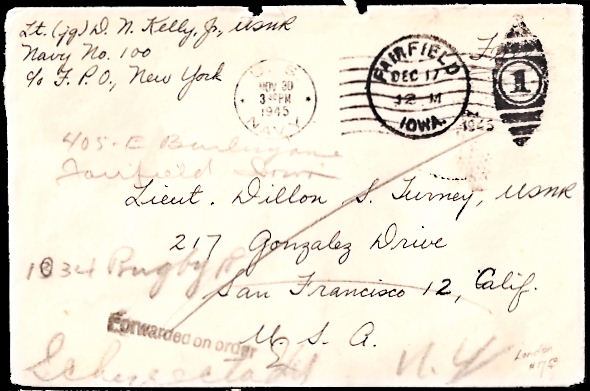 Lt. (jg) D. N. Kelly, Jr., USNR
Navy No. 100
c/o F.P.O., New York
NOV 30
3 PM
1945
NAVY
FAIRFIELD
DEC 17
12 M
1945
IOWA.
1
405 E
Fairfield Iowa
Lieut. Dillon S. Turney, USNR
217 Gonzalez Drive
1034 Rugby R
San Francisco 12, Calif.
Forwarded on order
U. S. A.
N. Y.
London